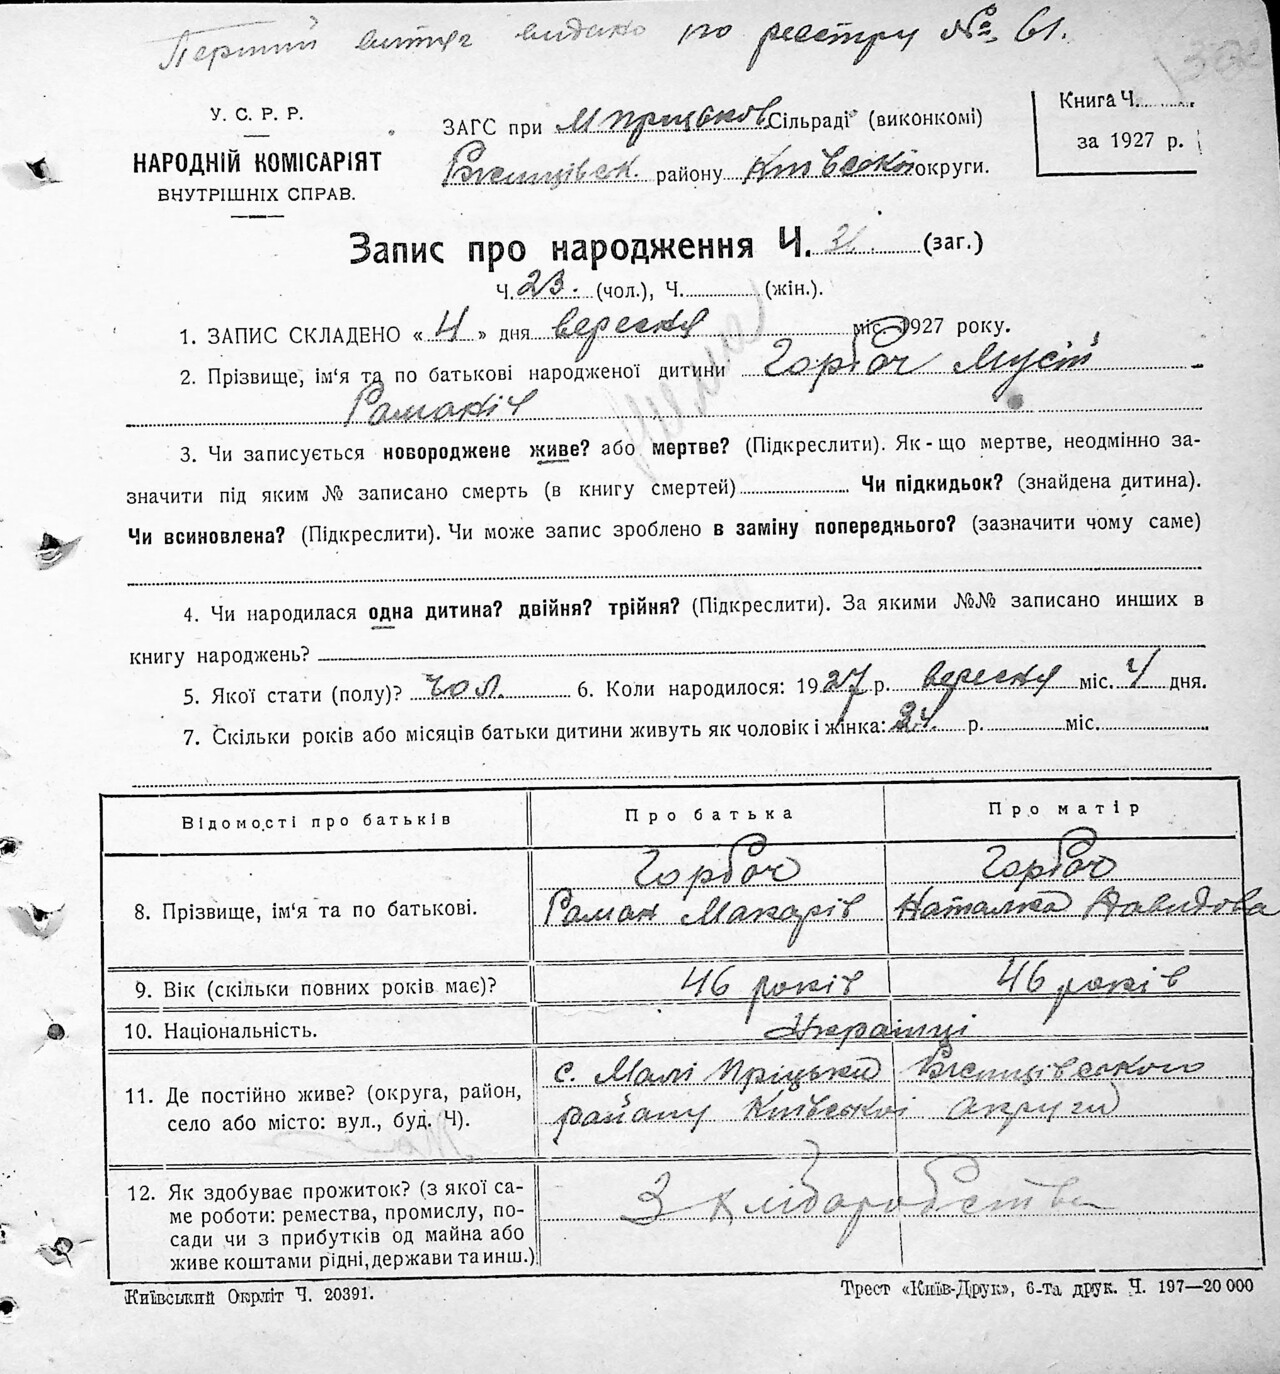 Перший витяг видано по реєстру № 61.
У. С. Р. Р.
НАРОДНІЙ КОМІСАРІЯТ
ВНУТРІШНІХ СПРАВ.
ЗАГС при М Пріцьков Сільраді (виконкомі)
Ржищівськ. району Київської округи.
Книга Ч.
за 1927 р.
Запис про народження Ч. 31. (заг.)
Ч. 23. (чол.), Ч. (жін.).
1. ЗАПИС СКЛАДЕНО « 4 » дня вересня міс. 1927 року.
2. Прізвище, ім‘я та по батькові народженої дитини Горбач Мусій
Раманіч
3. Чи записується новороджене живе? або мертве? (Підкреслити). Як-що мертве, неодмінно за-
значити під яким № записано смерть (в книгу смертей) Чи підкидьок? (знайдена дитина).
Чи всиновлена? (Підкреслити). Чи може запис зроблено в заміну попереднього? (зазначити чому саме)
4. Чи народилася одна дитина? двійня? трійня? (Підкреслити). За якими №№ записано инших в
книгу народжень?
5. Якої стати (полу)? чол. 6. Коли народилося: 1927 р. вересня міс. 4 дня.
7. Скільки років або місяців батьки дитини живуть як чоловік і жінка: 24. р. міс.
Відомості про батьків Про батька Про матір
Горбач Горбач
8. Прізвище, ім‘я та по батькові. Раман Макарів Наталка Давидова
9. Вік (скільки повних років має)? 46 років 46 років
10. Національність. Українці
11. Де постійно живе? (округа, район,
село або місто: вул., буд. Ч).
с. Малі Пріцьки Ржищівського
району Київської округи
12. Як здобуває прожиток? (з якої са-
ме роботи: ремества, промислу, по-
сади чи з прибутків од майна або
живе коштами рідні, держави та инш.)
З хліборобства
Київський Окрліт Ч. 20391.
Трест «Київ-Друк», 6-та друк. Ч. 197—20 000